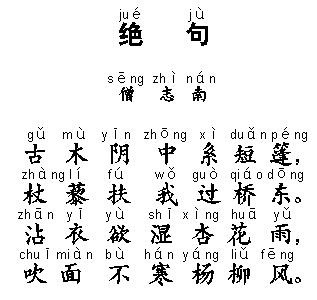 jué jù
绝 句
sēng zhì nán
僧 志 南
gǔ mù yīn zhōng xì duǎn péng
古 木 阴 中 系 短 篷,
zhàng lí fú wǒ guò qiáo dōng
杖 藜 扶 我 过 桥 东。
zhān yī yù shī xìng huā yǔ
沾 衣 欲 湿 杏 花 雨,
chuī miàn bù hán yáng liǔ fēng
吹 面 不 寒 杨 柳 风。